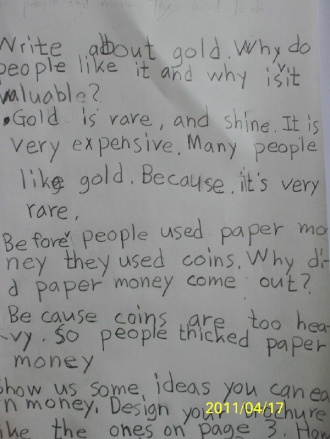 Write about gold. Why do
people like it and why is it
valuable?
•Gold is rare, and shine. It is
very expensive. Many people
like gold. Because. it's very
rare.
Before people used paper mo
ney they used coins. Why di
d paper money come out?
Be cause coins are too hea
vy. So people thicked paper
money
show us some ideas you can ea
n money. Design your brochure
like the ones on page 3. How
2011/04/17